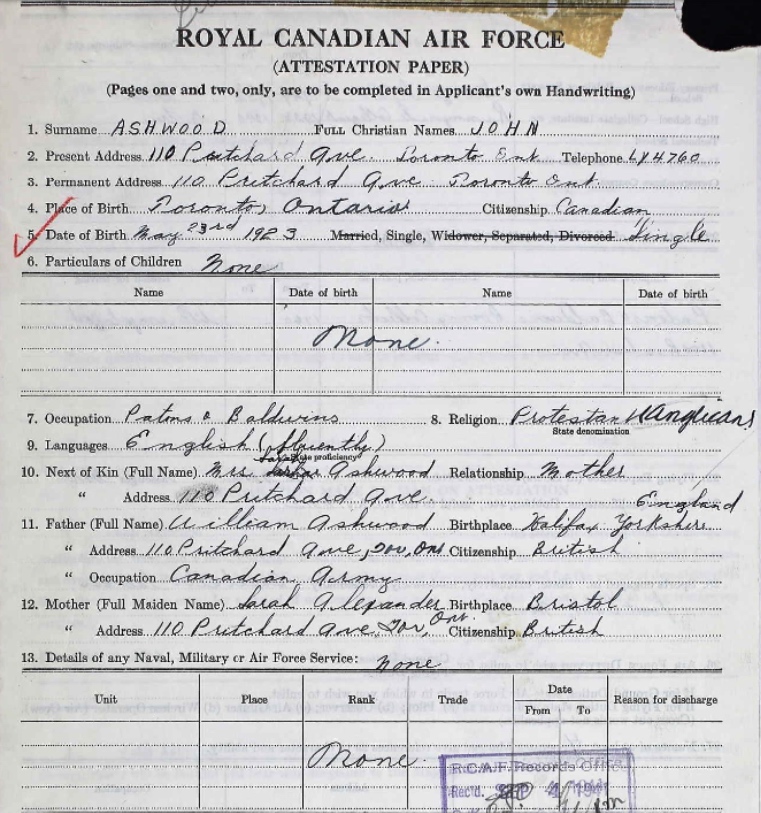 ROYAL CANADIAN AIR FORCE
(ATTESTATION PAPER)
(Pages one and two, only, are to be completed in Applicant's own Handwriting)
1. Surname ASHWOOD FULL Christian Names JOHN
2. Present Address 110 Pritchard Ave. Toronto Ont Telephone LY4760
3. Permanent Address 110 Pritchard Ave Toronto Ont.
4. Place of Birth Toronto, Ontario Citizenship Canadian
5. Date of Birth May 23rd 1923 Married, Single, Widower, Separated, Divorced Single
6. Particulars of Children None
Name Date of birth Name Date of birth
None.
7. Occupation Patons & Baldwins 8. Religion Protestant (Anglican)
State denomination
9. Languages English (fluently)
State proficiency
10. Next of Kin (Full Name) Mrs. Sarah Ashwood Relationship Mother
" Address 110 Pritchard Ave.
England
11. Father (Full Name) William Ashwood Birthplace Halifax Yorkshire
" Address 110 Pritchard Ave, Tor, Ont Citizenship British
" Occupation Canadian Army
12. Mother (Full Maiden Name) Sarah Alexander Birthplace Bristol
" Address 110 Pritchard Ave, Tor, Ont. Citizenship British
13. Details of any Naval, Military or Air Force Service: None
Unit Place Rank Trade Date From To Reason for discharge
None.
R.C.A.F. Records Office
Rec'd. SEP 4 194